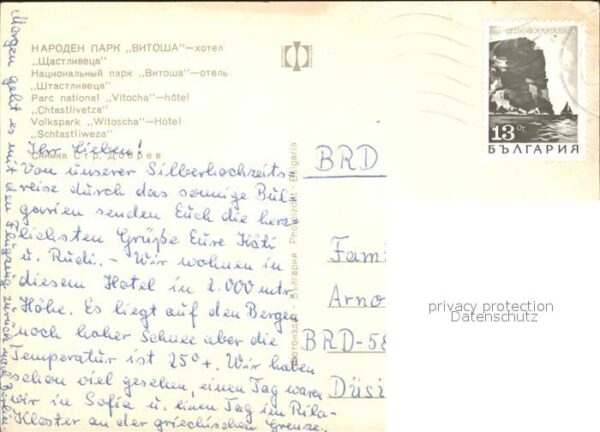 НАРОДЕН ПАРК „ВИТОША"—хотел
„Щастливеца"
Национальный парк „Витоша"—отель
„Штастливеца"
Parc national „Vitocha"—hôtel
„Chtastlivetza"
Volkspark „Witoscha"—Hotel
„Schtastliweza"
Снимка Стр. Добрев
Ihr Lieben!
Von unserer Silberhochzeits
reise durch das sonnige Bul
garien senden Euch die herz
lichsten Grüße Eure Käti
u. Rudi. - Wir wohnen in
diesem Hotel in 2.000 mtr.
Höhe. Es liegt auf den Bergen
noch hoher Schnee aber die
Temperatur ist 25°+. Wir haben
schon viel gesehen, einen Tag waren
wir in Sofia u. einen Tag im Rila-
Kloster an der griechischen Grenze.
Morgen geht es mit dem Flugzeug zurück nach Berlin.
Фотоиздат - България Photoizdat - Bulgaria
13 Ст.
БЪЛГАРИЯ
BRD
Fami
Arno
BRD-58
Düsi
privacy protection
Datenschutz